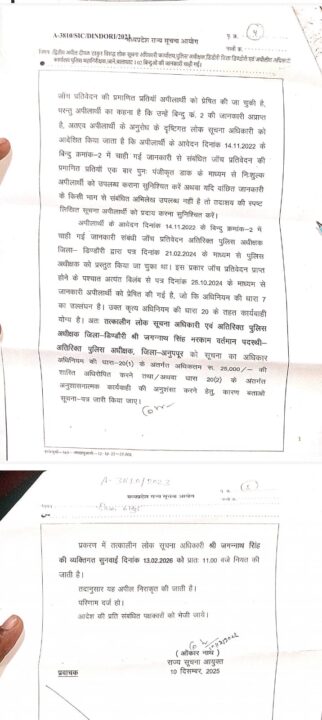 A-3810/SIC/DINDORI/2023
मध्यप्रदेश राज्य सूचना आयोग
पृ. क्र.
4
जाँच प्रतिवेदन की प्रमाणित प्रतियाँ अपीलार्थी को प्रेषित की जा चुकी है,
परन्तु अपीलार्थी का कहना है कि उन्हें बिन्दु क्र. 2 की जानकारी अप्राप्त
है, अतएव अपीलार्थी के अनुरोध के दृष्टिगत लोक सूचना अधिकारी को
आदेशित किया जाता है कि अपीलार्थी के आवेदन दिनांक 14.11.2022 के
बिन्दु क्रमांक-2 में चाही गई जानकारी से संबंधित जाँच प्रतिवेदन की
प्रमाणित प्रतियाँ एक बार पुनः पंजीकृत डाक के माध्यम से निःशुल्क
अपीलार्थी को उपलब्ध कराना सुनिश्चित करें अथवा यदि वांछित जानकारी
के किसी नाम से संबंधित अभिलेख उपलब्ध नहीं है तो तदाशय की स्पष्ट
लिखित सूचना अपीलार्थी को प्रदाय करना सुनिश्चित करें।
अपीलार्थी के आवेदन दिनांक 14.11.2022 के बिन्दु क्रमांक-2 में
चाही गई जानकारी संबंधी जाँच प्रतिवेदन अतिरिक्त पुलिस अधीक्षक
जिला- डिण्डौरी द्वारा पत्र दिनांक 21.02.2024 के माध्यम से पुलिस
अधीक्षक को प्रस्तुत किया जा चुका था। इस प्रकार जाँच प्रतिवेदन प्राप्त
होने के पश्चात अत्यंत विलंब से पत्र दिनांक 25.10.2024 के माध्यम से
जानकारी अपीलार्थी को प्रेषित की गई है, जो कि अधिनियम की धारा 7
का उल्लंघन है। उक्त कृत्य अधिनियम की धारा 20 के तहत कार्यवाही
योग्य है। अतः तत्कालीन लोक सूचना अधिकारी एवं अतिरिक्त पुलिस
अधीक्षक जिला-डिण्डौरी श्री जगन्नाथ सिंह मरकाम वर्तमान पदस्थी-
अतिरिक्त पुलिस अधीक्षक, जिला-अनुपपुर को सूचना का अधिकार
अधिनियम की धारा-20(1) के अंतर्गत अधिकतम रू. 25,000/- की
शास्ति अधिरोपित करने तथा/अथवा धारा 20(2) के अंतर्गत
अनुशासनात्मक कार्यवाही की अनुशंसा करने हेतु, कारण बताओ
सूचना-पत्र जारी किया जाए।
1
A-3810/2023
मध्यप्रदेश राज्य सूचना आयोग
पृ. क्र.
प्रकरण में तत्कालीन लोक सूचना अधिकारी श्री जगन्नाथ सिंह
की व्यक्तिगत सुनवाई दिनांक 13.02.2026 को प्रातः 11.00 बजे नियत की
जाती है।
तदानुसार यह अपील निराकृत की जाती है।
परिणाम दर्ज हो।
आदेश की प्रति संबंधित पक्षकारों को भेजी जावे।
(ओंकार नाथ)
राज्य सूचना आयुक्त
10 दिसम्बर, 2025
प्रवाचक